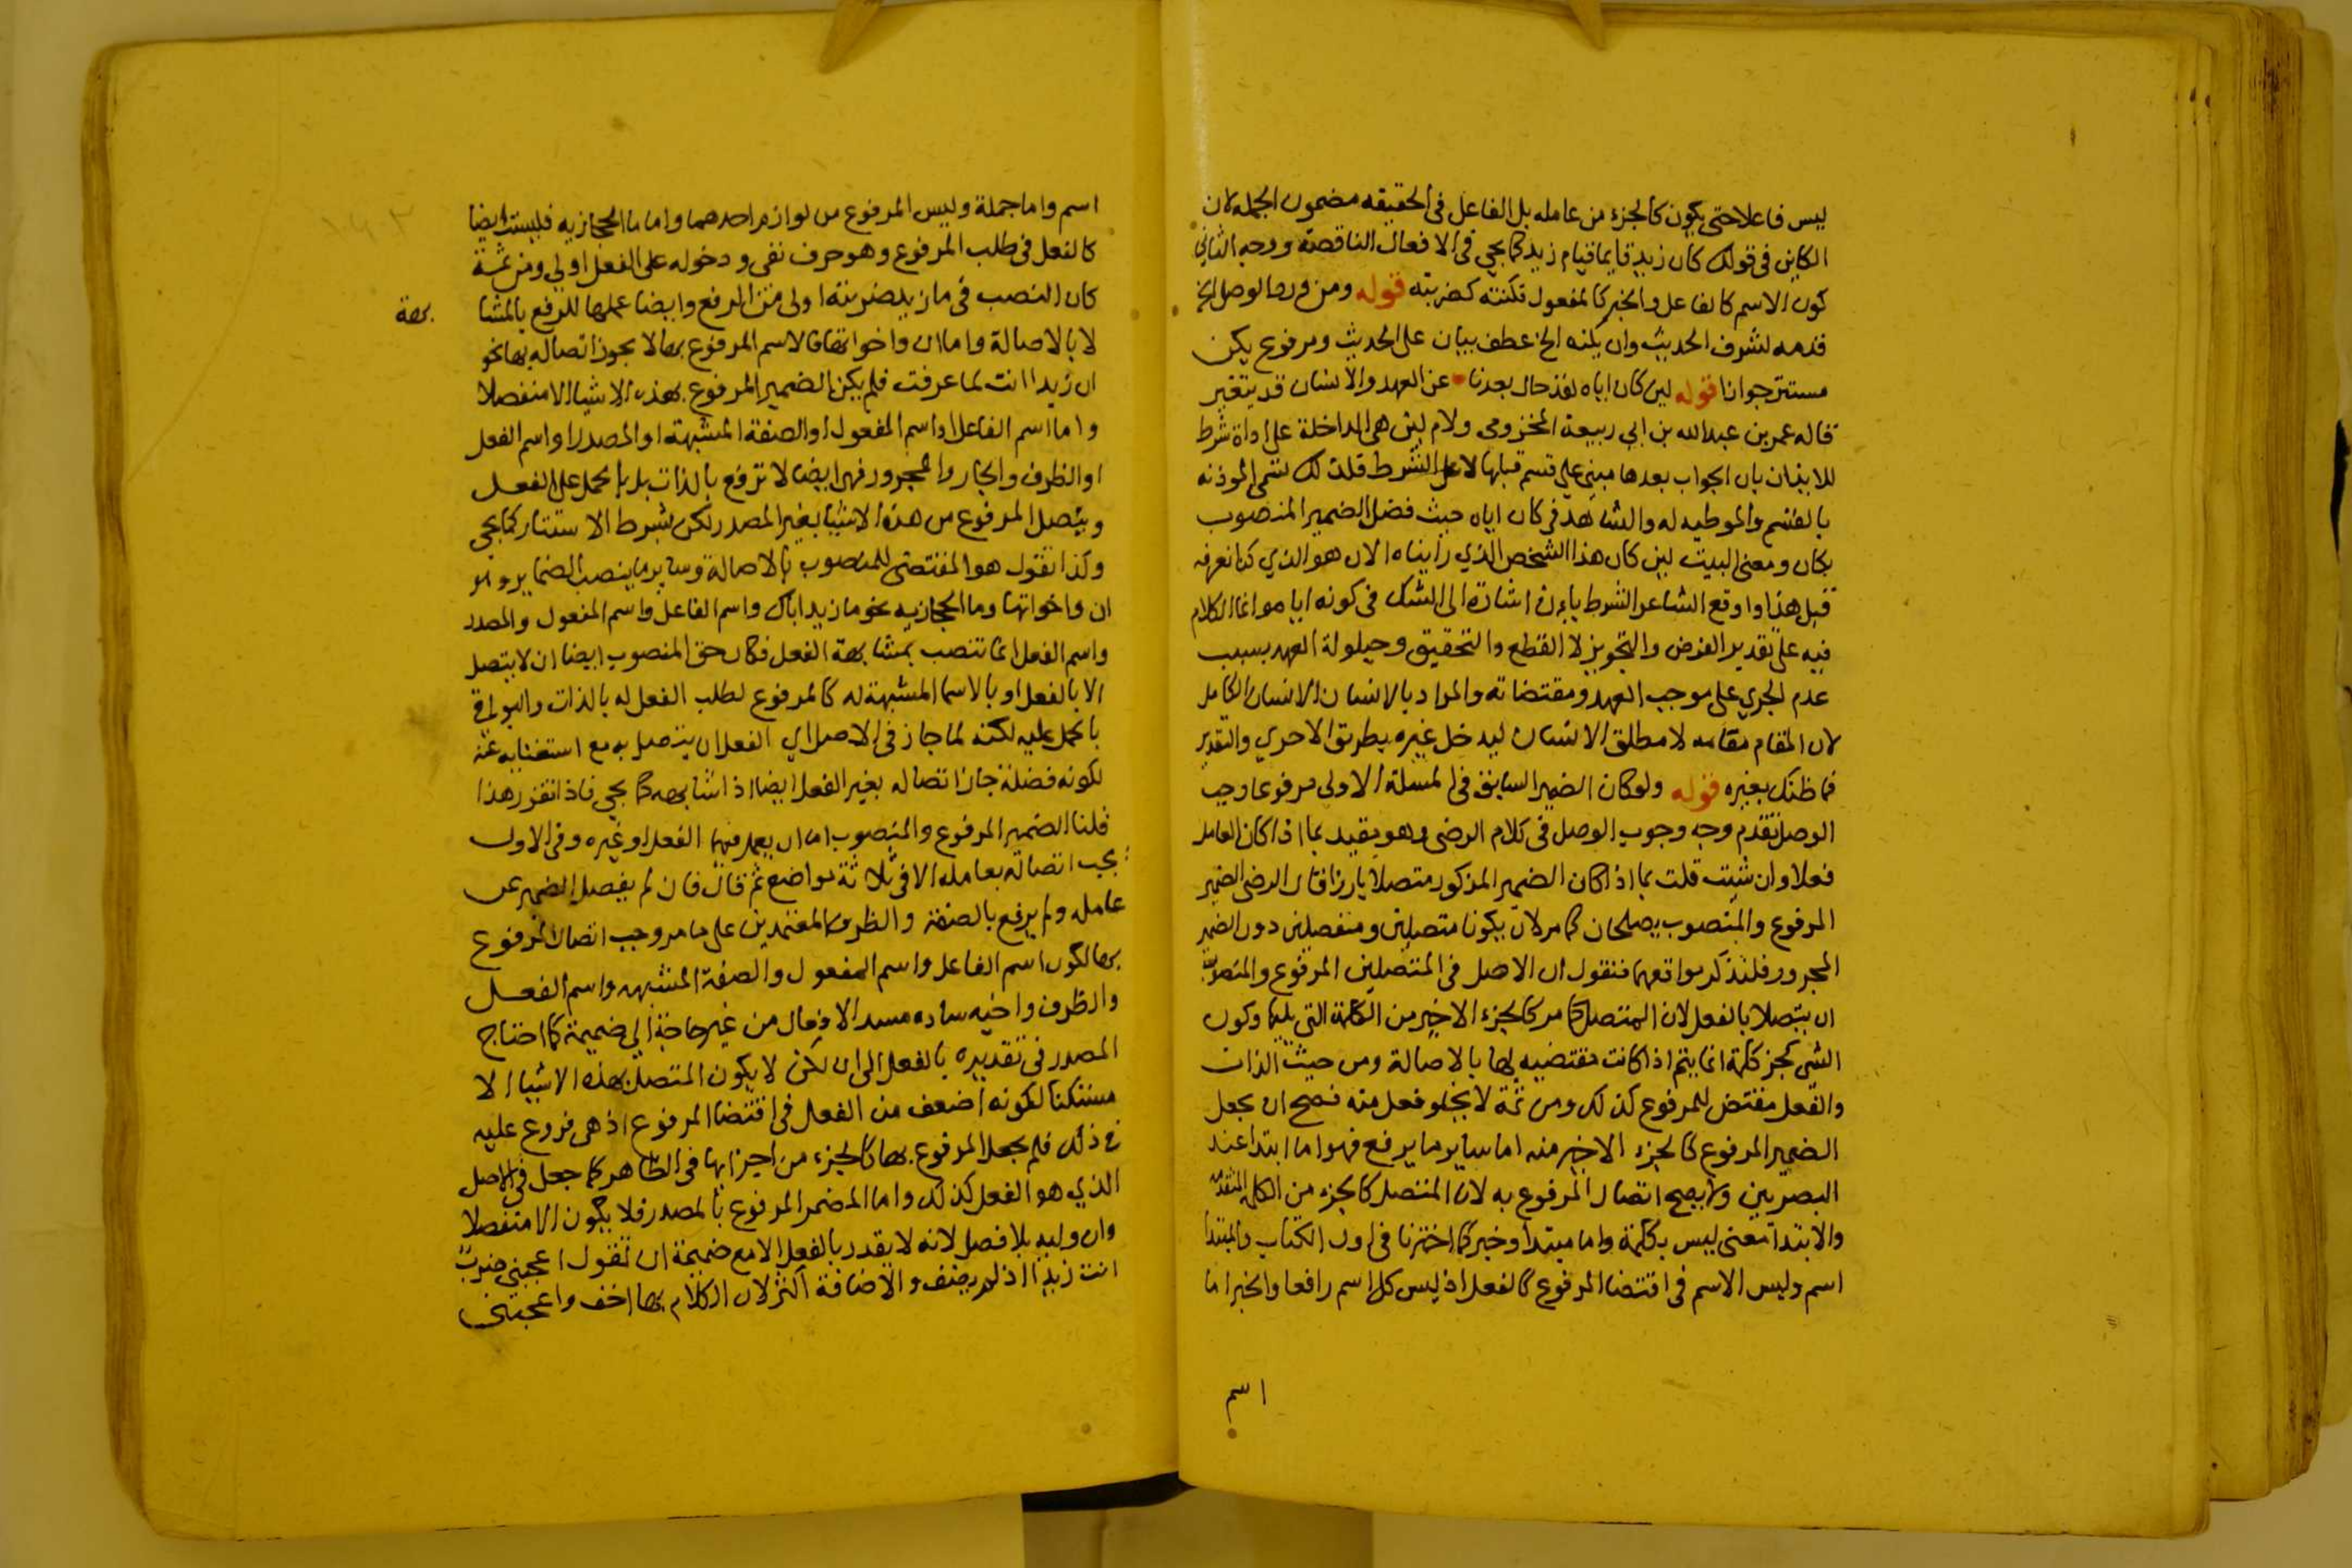 ليس فاعلا حتى يكون كالجزء من عامله بل الفاعل فى الحقيقه مضمون الجمله لان
الكاين فى قولك كان زيد قايما قيام زيد كما يجي فى الافعال الناقصة ووجه الثاني
كون الاسم كالفاعل والخبر كالمفعول فكنته كضربته قوله ومن ورود الوصل الخ
قدمه لشرف الحديث وان يكنه الخ عطف بيان على الحديث ومرفوع يكن
مستتر جوازا قوله لين كان اياه لقد حال بعدنا عن العهد والانسان قد يتغير
قاله عمر بن عبدالله بن ابي ربيعة المخزومى ولام لين هى الداخلة على اداة شرط
للايذان بان الجواب بعدها مبنى على قسم قبلها لا على الشرط فلذلك تسمى الموذنه
بالقسم والموطيه له والشاهد فى كان اياه حيث فصل الضمير المنصوب
بكان ومعنى البيت لين كان هذا الشخص الذي رايناه الان هو الذي كنا نعرفه
قبل هذا واوقع الشاعر الشرط بان اشارة الى الشك فى كونه اياه وانما الكلام
فيه على تقدير الفرض والتجويز لا القطع والتحقيق وحيلولة العهد بسبب
عدم الجري على موجب العهد ومقتضاته والمراد بالانسان الانسان الكامل
لان المقام مقامه لا مطلق الانسان ليدخل غيره بطريق الاحري والتقدير
فما ظنك بغيره قوله ولو كان الضمير السابق فى المسلة الاولى مرفوعا وجب
الوصل تقدم وجه وجوب الوصل فى كلام الرضى وهو مقيد بما اذا كان العامل
فعلا وان شيت قلت بما اذا كان الضمير المذكور متصلا بارزا قال الرضى الضمير
المرفوع والمنصوب يصلحان كما مر لان يكونا متصلين ومنفصلين دون الضمير
المجرور فلنذكر مواقعهما فنقول ان الاصل فى المتصلين المرفوع والمنصوب
ان يتصلا بالفعل لان المتصل كما مر كالجزء الاخير من الكلمة التى يليها وكون
الشى كجز كلمة انما يتم اذا كانت مقتضيه لها بالاصالة ومن حيث الذات
والفعل مقتض للمرفوع كذلك ومن ثمة لا يخلو فعل منه فصح ان يجعل
الضمير المرفوع كالجزء الاخير منه اما ساير ما يرفع فهو اما ابتدا عند
البصريين ولا يصح اتصال المرفوع به لان المتصل كالجزء من الكلمة المتقدمة
والابتدا معنى ليس بكلمة واما مبتدا وخبر كما اخترنا فى اول الكتاب والمبتدا
اسم وليس الاسم فى اقتضا المرفوع كالفعل اذ ليس كل اسم رافعا والخبر اما
اسم
اسم واما جملة وليس المرفوع من لوازم احدهما واما ما الحجازيه فليست ايضا
كالفعل فى طلب المرفوع وهو حرف نفى ودخوله على الفعل اولى ومن ثمة
كان النصب فى ما زيد ضربته اولى من الرفع وايضا عملها للرفع بالمشا بهة
لا بالاصالة واما ان واخواتها فالاسم المرفوع بها لا يجوز اتصاله بها نحو
ان زيدا انت لما عرفت فلم يكن الضمير المرفوع بهذه الاشيا الا منفصلا
واما اسم الفاعل او اسم المفعول او الصفة المشبهة او المصدر او اسم الفعل
او الظرف والجار والمجرور فهى ايضا لا ترفع بالذات بل بالحمل على الفعل
ويتصل المرفوع من هذه الاشيا بغير المصدر لكن بشرط الاستتار كما يجي
وكذا نقول هو المقتضى للمنصوب بالاصالة وساير ما ينصب الضماير وهو
ان واخواتها وما الحجازيه نحو ما زيد اياك واسم الفاعل واسم المفعول والمصدر
واسم الفعل انما تنصب بمشابهة الفعل فكان حق المنصوب ايضا ان لا يتصل
الا بالفعل او بالاسما المشبهة له كالمرفوع لطلب الفعل له بالذات والبواقى
بالحمل عليه لكنه لما جاز فى الاصل اي الفعل ان يتصل به مع استغنايه عنه
لكونه فضلة جاز اتصاله بغير الفعل ايضا اذا شابهه كما يجي فاذا تقرر هذا
قلنا الضمير المرفوع والمنصوب اما ان يعمل فيهما الفعل او غيره وفى الاول
يجب اتصاله بعامله الا فى ثلاثة مواضع ثم قال فان لم يفصل الضمير عن
عامله ولم يرفع بالصفة والظرف المعتمدين على ما مر وجب اتصال المرفوع
بها لكون اسم الفاعل واسم المفعول والصفة المشبهه واسم الفعل
والظرف واخيه ساده مسد الافعال من غير حاجة الى ضميمة كما احتاج
المصدر فى تقديره بالفعل الى ان لكن لا يكون المتصل بهذه الاشيا الا
مستكنا لكونه اضعف من الفعل فى اقتضا المرفوع اذ هى فروع عليه
فى ذلك فلم يجعل المرفوع بها كالجزء من اجزايها فى الظاهر كما جعل فى الاصل
الذي هو الفعل كذلك واما المضمر المرفوع بالمصدر فلا يكون الا منفصلا
وان وليه بلا فصل لانه لا يقدر بالفعل الا مع ضميمة ان تقول اعجبنى ضرب
انت زيدا اذ لم يضف والاضافة اكثر لان الكلام بها اخف واعجبنى